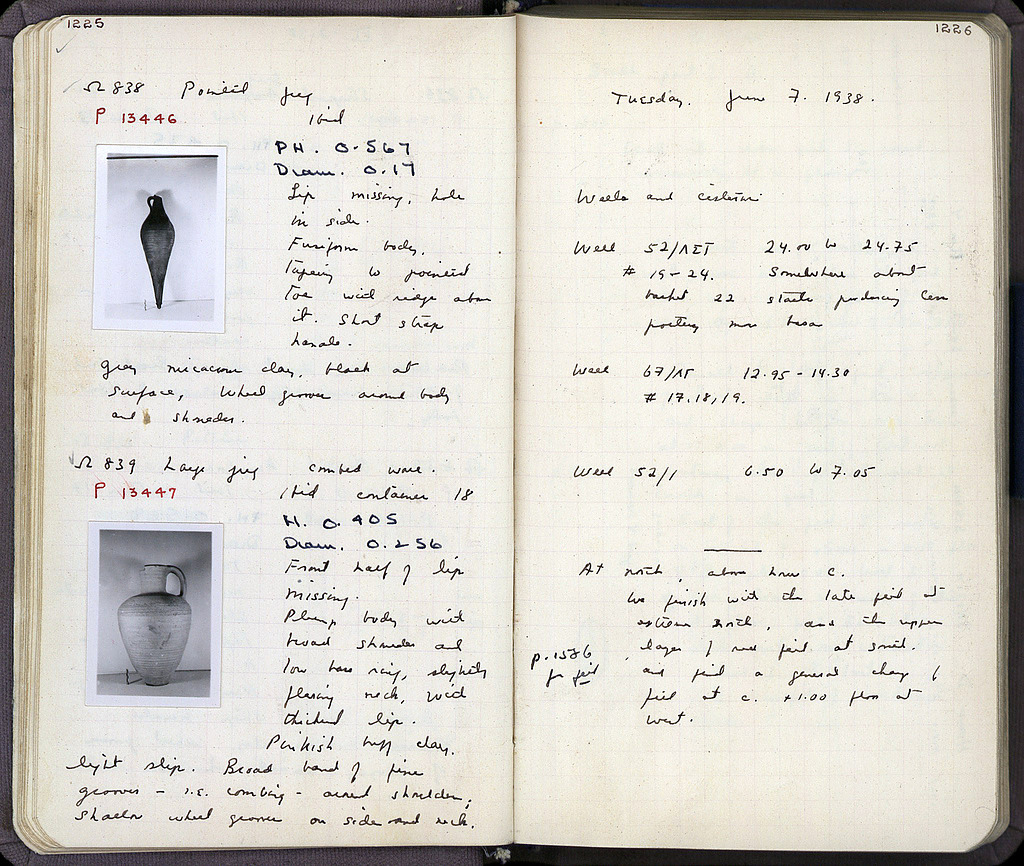 1225
Ω 838 Pointed jug
P 13446 Ibid
PH. 0.567
Diam. 0.17
Lip missing, hole
in side.
Fusiform body,
tapering to pointed
toe with ridge above
it. Short strap
handle.
Grey micaceous clay, black at
surface, wheel grooves around body
and shoulder.
Ω 839 Large jug combed ware.
P 13447 Ibid container 18
H. 0.405
Diam. 0.256
Front half of lip
missing.
Plump body with
broad shoulder and
low base ring, slightly
flaring neck, with
thickened lip.
Pinkish buff clay,
light slip. Broad band of fine
grooves - i.e. combing - around shoulder;
shallow wheel grooves on side and neck.
1226
Tuesday. June 7. 1938.
Wells and cisterns:
Well 52/ΛΣΤ 24.00 to 24.75
# 19-24. Somewhere about
basket 22 starts producing less
pottery more
Well 67/ΛΓ 12.95 - 14.30
# 17, 18, 19.
Well 52/1 6.50 to 7.05
At north, above house C.
We finish with the late fill at
extreme north, and the upper
layer of fill at south.
and find a general change of
fill at c. +1.00 from at
west.
p. 1586
for fill